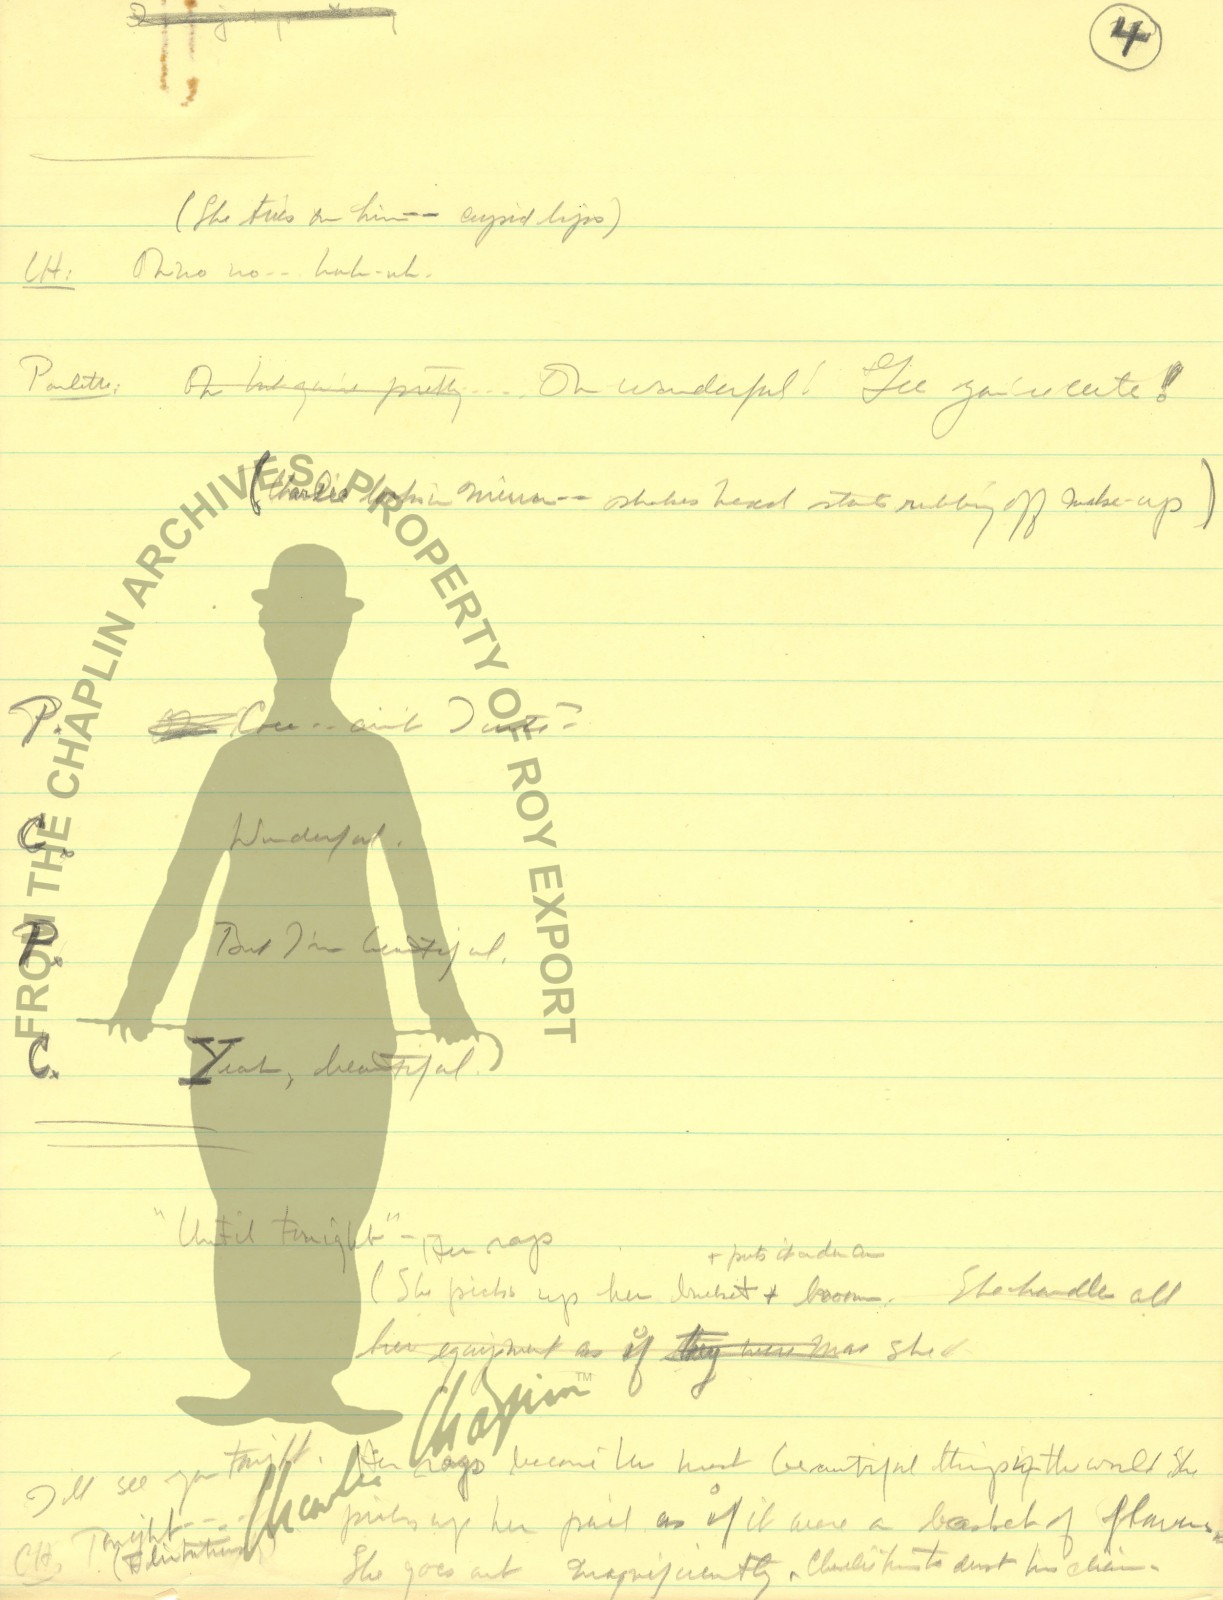 4
(She tries on him -- cupid lips)
CH: Oh no no -- huh-uh.
Paulette: Oh but you're pretty .... Oh wonderful! Gee you're cute!
(Charlie looks in mirror -- shakes head starts rubbing off make-up)
P. Gee -- ain't I cute?
C. Wonderful.
P. But I'm beautiful.
C. Yeah, beautiful.
"Until tonight" - Her rags
+ puts it under arm
(She picks up her bucket + broom. She handles all
her equipment as if they were she
I'll see you tonight. Her rags become the most beautiful things in the world. She
Tonight ---- picks up her pail as if it were a basket of flowers
CH: She goes out magnificently. Charlie to dust his chair.
FROM THE CHAPLIN ARCHIVES, PROPERTY OF ROY EXPORT
Charlie Chaplin™